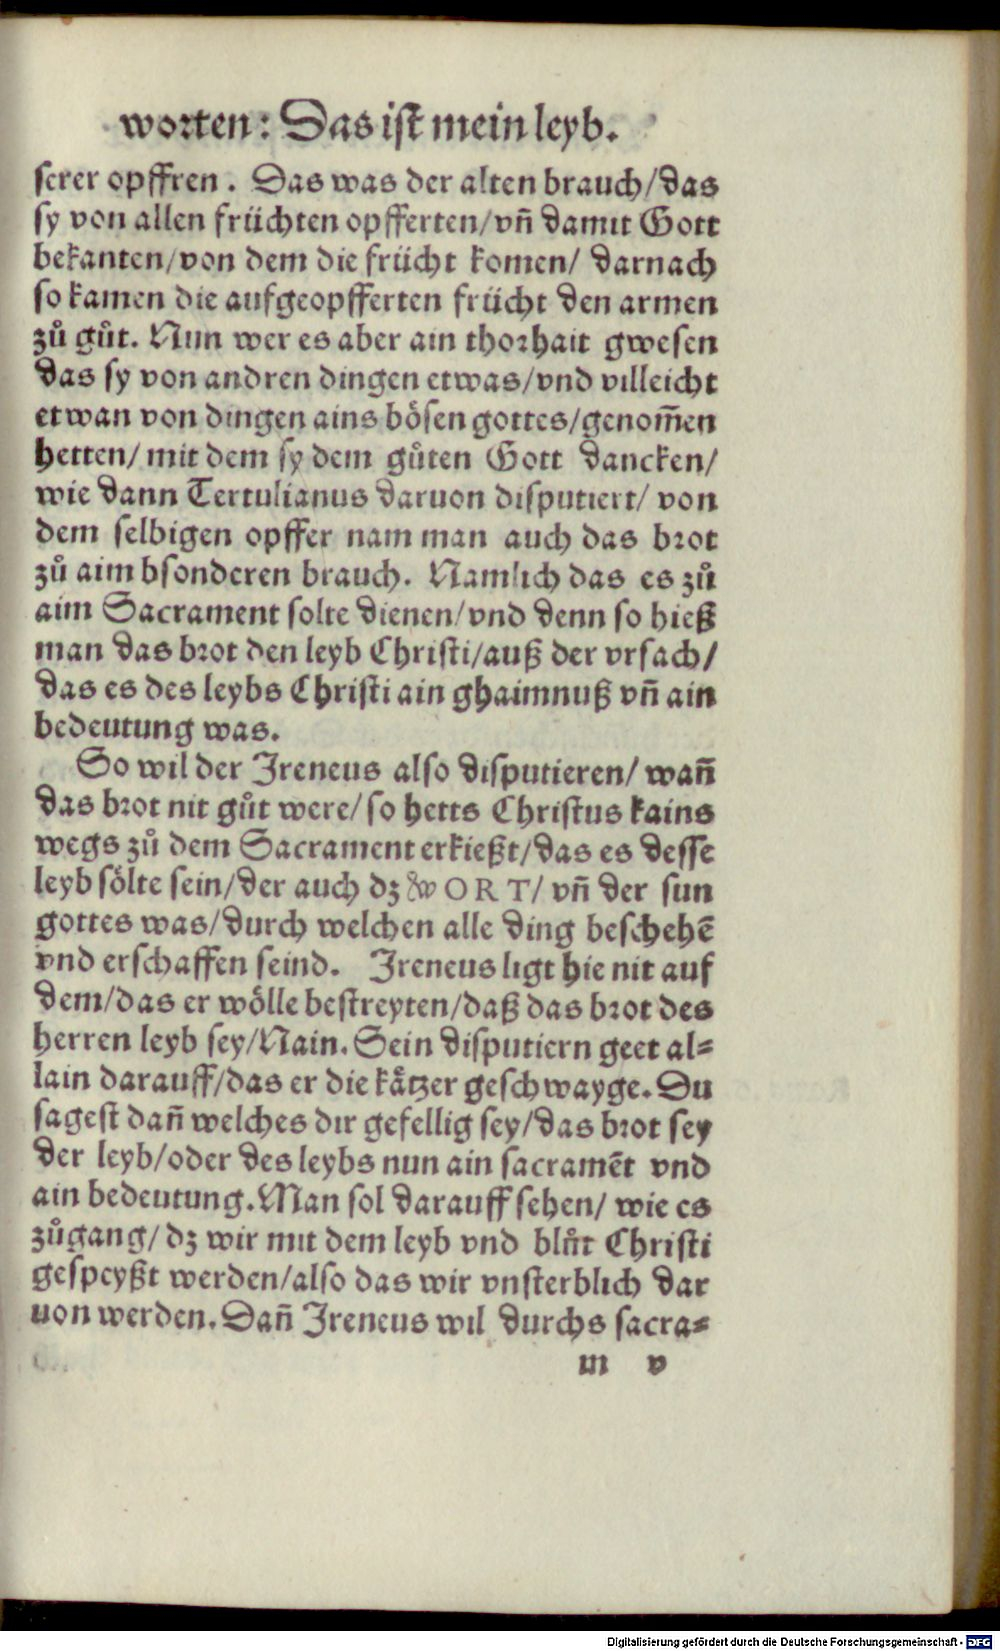 worten: Das ist mein leyb.
serer opffren. Das was der alten brauch/das
sy von allen früchten opfferten/vn̄ damit Gott
bekanten/von dem die frücht komen/ darnach
so kamen die aufgeopfferten frücht den armen
zů gůt. Nun wer es aber ain thorhait gwesen
das sy von andren dingen etwas/vnd villeicht
etwan von dingen ains bösen gottes/genom̄en
hetten/ mit dem sy dem gůten Gott dancken/
wie dann Tertulianus daruon disputiert/ von
dem selbigen opffer nam man auch das brot
zů aim bsonderen brauch. Namlich das es zů
aim Sacrament solte dienen/vnd denn so hieß
man das brot den leyb Christi/auß der vrsach/
das es des leybs Christi ain ghaimnuß vn̄ ain
bedeutung was.
So wil der Ireneus also disputieren/ wan̄
das brot nit gůt were/so hetts Christus kains
wegs zů dem Sacrament erkießt/das es desse
leyb sölte sein/der auch dz WORT/ vn̄ der sun
gottes was/durch welchen alle ding beschehē
vnd erschaffen seind. Ireneus ligt hie nit auf
dem/das er wölle bestreyten/daß das brot des
herren leyb sey/Nain. Sein disputiern geet al⸗
lain darauff/das er die kätzer geschwayge. Du
sagest dan̄ welches dir gefellig sey/das brot sey
der leyb/oder des leybs nun ain sacramēt vnd
ain bedeutung. Man sol darauff sehen/ wie es
zůgang/ dz wir mit dem leyb vnd blůt Christi
gespeyßt werden/also das wir vnsterblich dar
uon werden. Dan̄ Ireneus wil durchs sacra⸗
m v
Digitalisierung gefördert durch die Deutsche Forschungsgemeinschaft - DFG